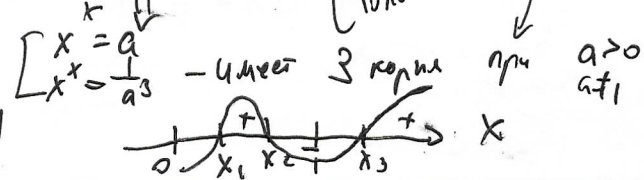 x^x = a
x^x = 1/a^3 - имеет 3 корня при a>0
a≠1
+ +
0 x_1 x_2 - x_3 X